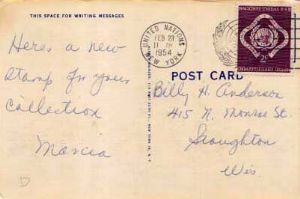 THIS SPACE FOR WRITING MESSAGES
Here's a new
Stamp for your
Collection
Marcia
UNITED NATIONS
FEB 23
11 AM
1954
NEW YORK
POST CARD
Billy H. Anderson
415 N. Monroe St.
Stoughton
Wis.